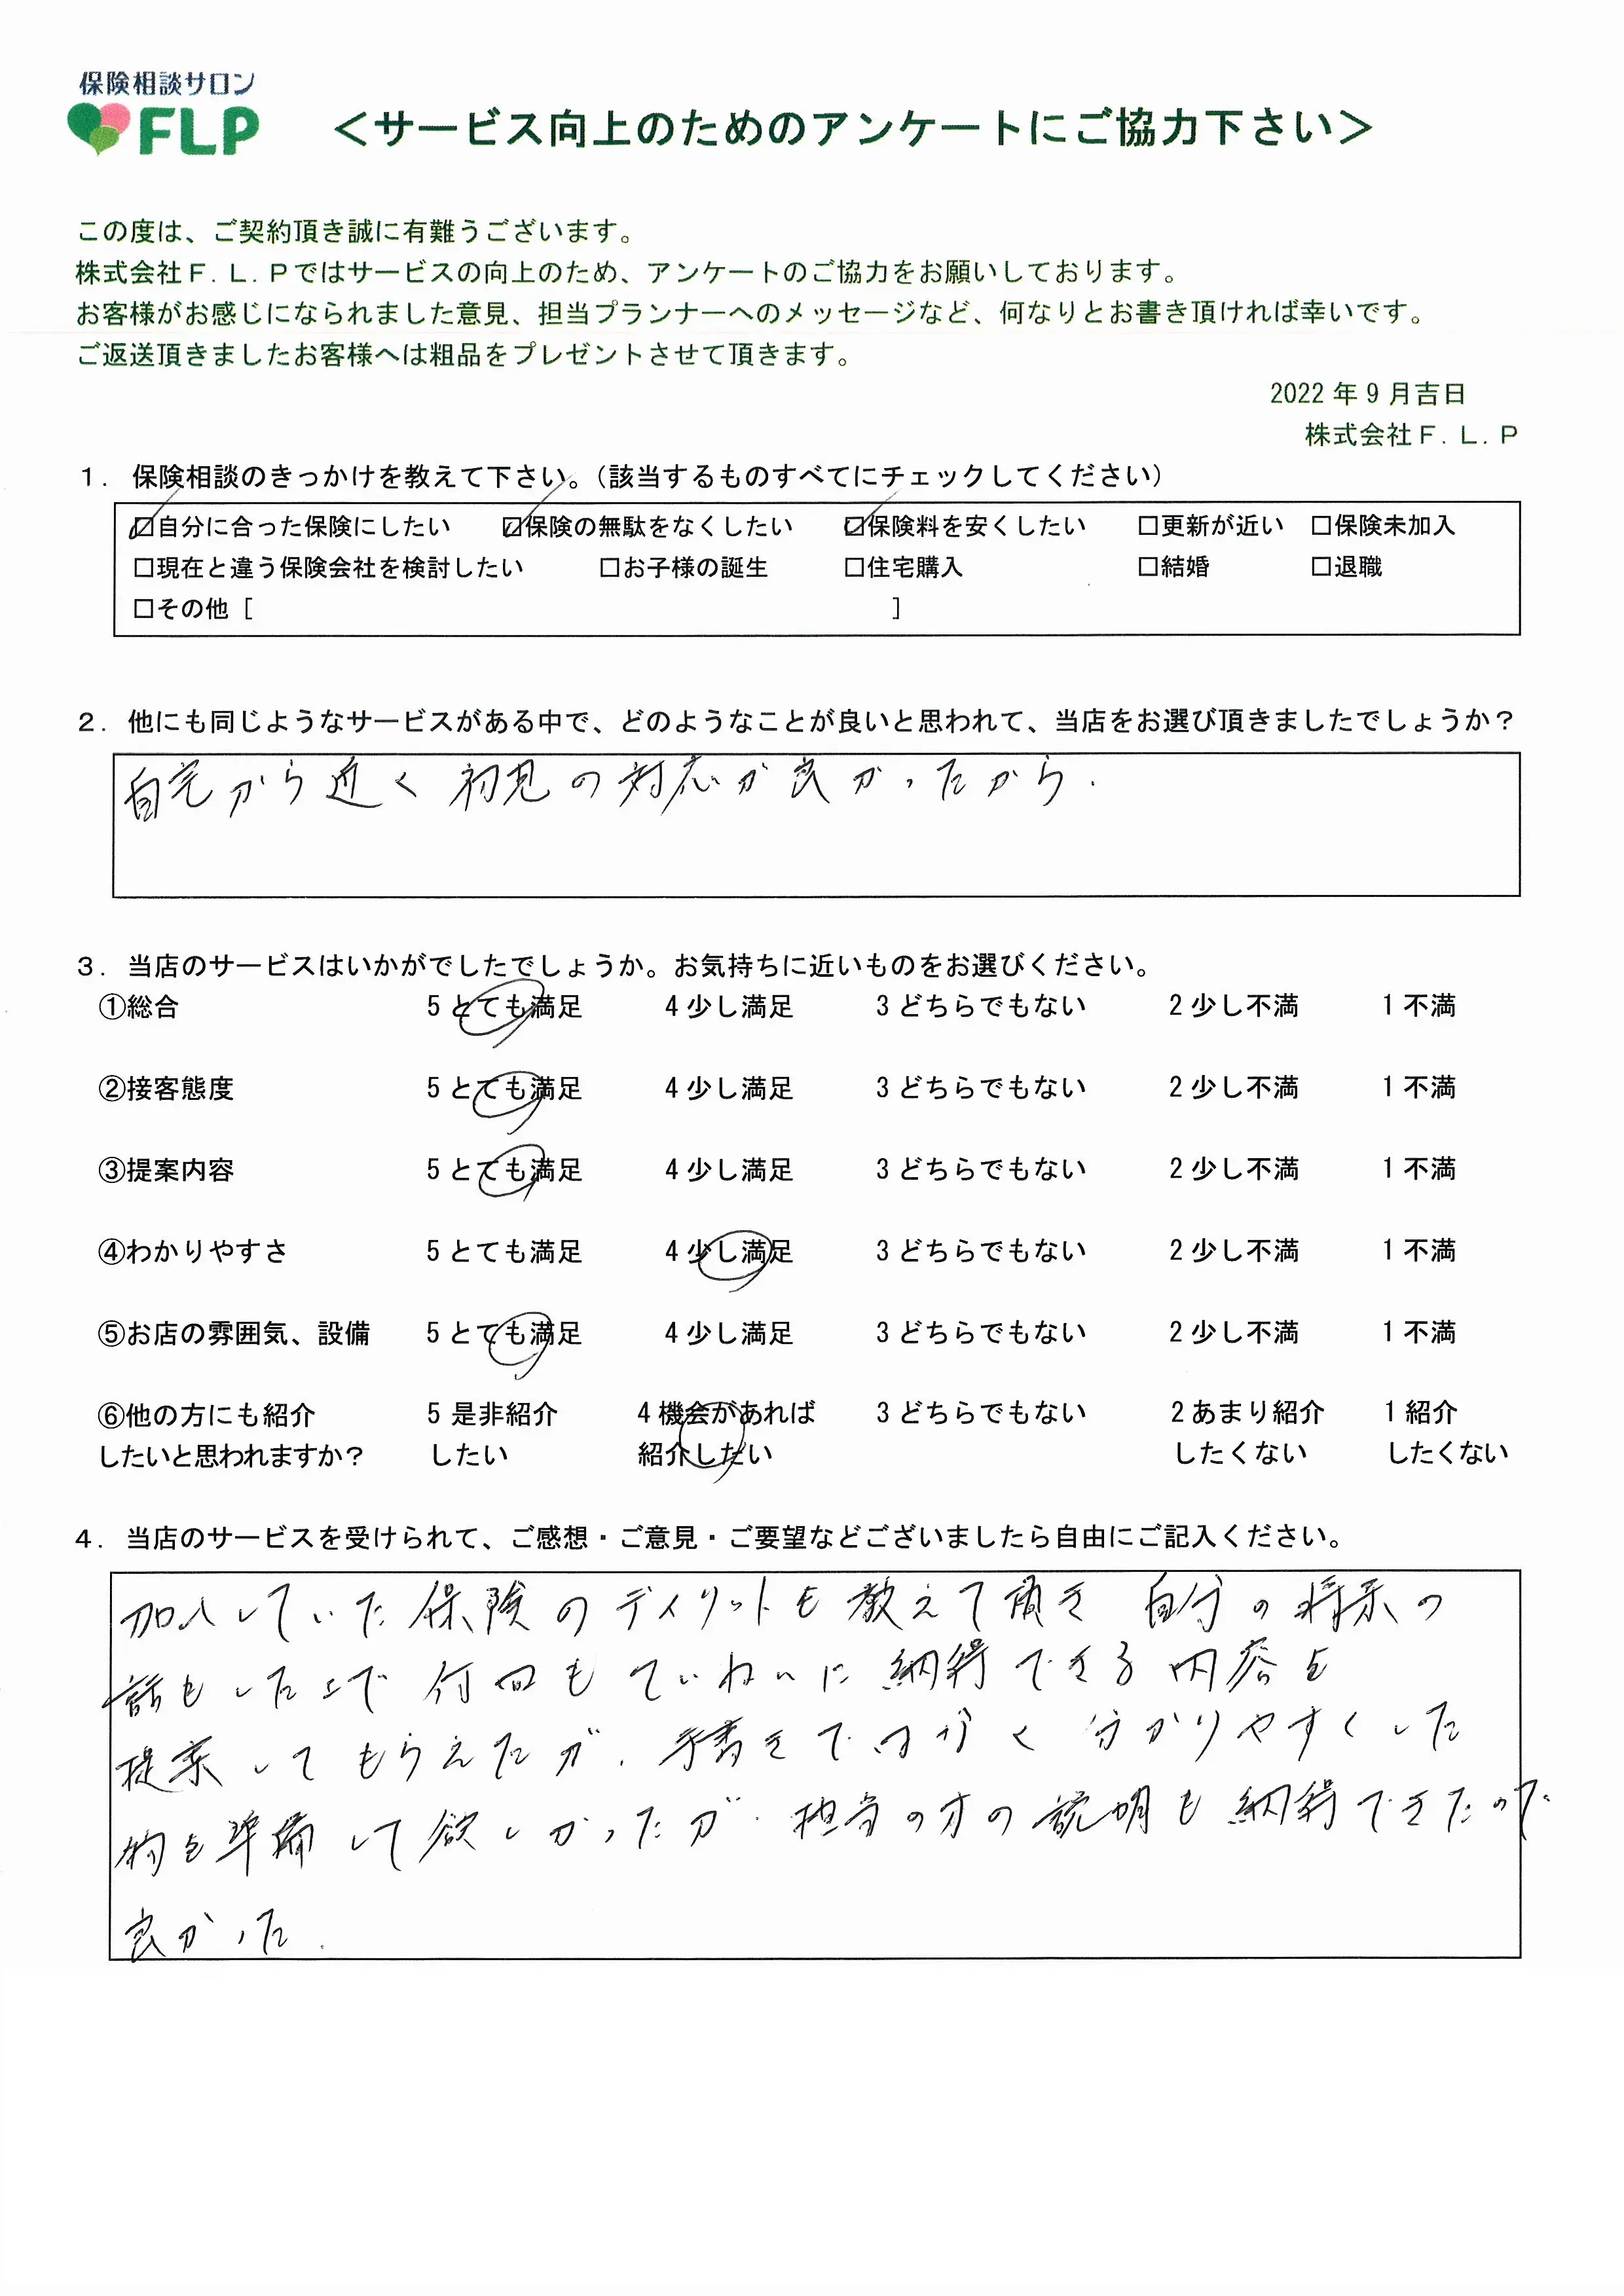 保険相談サロン
FLP
＜サービス向上のためのアンケートにご協力下さい＞
この度は、ご契約頂き誠に有難うございます。
株式会社Ｆ．Ｌ．Ｐではサービスの向上のため、アンケートのご協力をお願いしております。
お客様がお感じになられました意見、担当プランナーへのメッセージなど、何なりとお書き頂ければ幸いです。
ご返送頂きましたお客様へは粗品をプレゼントさせて頂きます。
2022 年 9 月吉日
株式会社Ｆ．Ｌ．Ｐ
１．保険相談のきっかけを教えて下さい。（該当するものすべてにチェックしてください）
☑自分に合った保険にしたい ☑保険の無駄をなくしたい ☑保険料を安くしたい □更新が近い □保険未加入
□現在と違う保険会社を検討したい □お子様の誕生 □住宅購入 □結婚 □退職
□その他［ ］
２．他にも同じようなサービスがある中で、どのようなことが良いと思われて、当店をお選び頂きましたでしょうか？
自宅から近く 初見の対応が良かったから.
３．当店のサービスはいかがでしたでしょうか。お気持ちに近いものをお選びください。
①総合 5 とても満足 4 少し満足 3 どちらでもない 2 少し不満 1 不満
②接客態度 5 とても満足 4 少し満足 3 どちらでもない 2 少し不満 1 不満
③提案内容 5 とても満足 4 少し満足 3 どちらでもない 2 少し不満 1 不満
④わかりやすさ 5 とても満足 4 少し満足 3 どちらでもない 2 少し不満 1 不満
⑤お店の雰囲気、設備 5 とても満足 4 少し満足 3 どちらでもない 2 少し不満 1 不満
⑥他の方にも紹介 5 是非紹介 4 機会があれば 3 どちらでもない 2 あまり紹介 1 紹介
したいと思われますか？ したい 紹介したい したくない したくない
４．当店のサービスを受けられて、ご感想・ご意見・ご要望などございましたら自由にご記入ください。
加入していた保険のデメリットも教えて頂き 自分の将来の
話もした上で 何回も ていねいに 納得できる内容を
提案してもらえたが. 手書きではなく 分かりやすくした
物を準備して欲しかったが. 担当の方の説明も納得できたので
良かった.